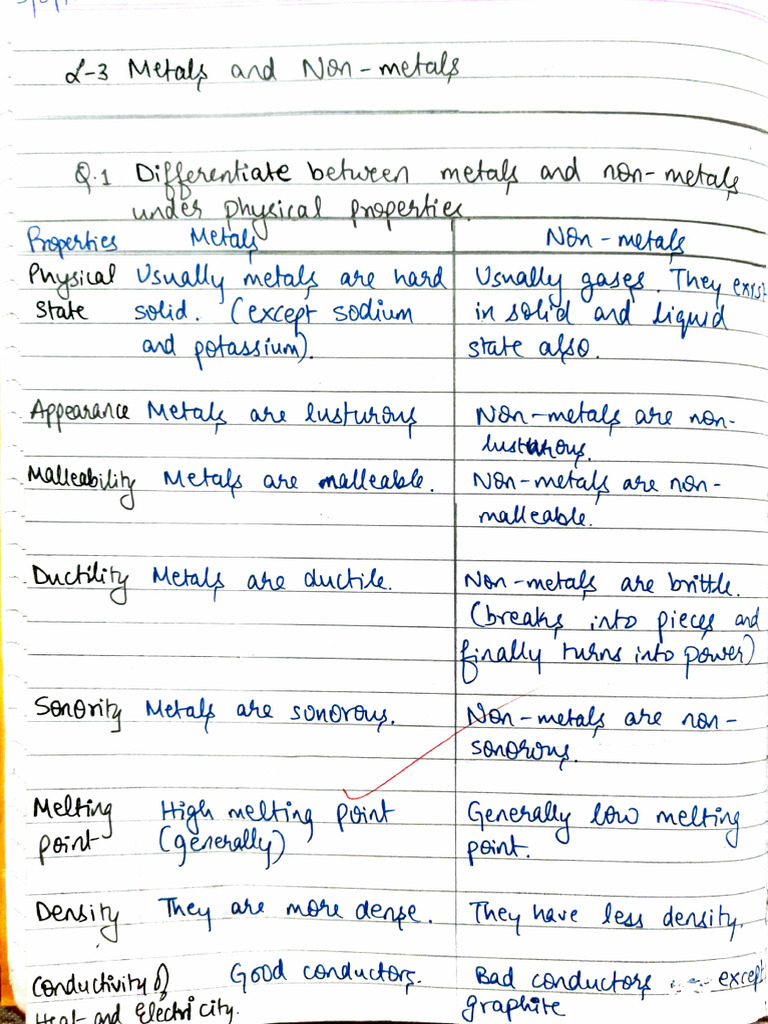 L-3 Metals and Non-metals
Q.1 Differentiate between metals and non-metals
under physical properties.
Properties Metals Non-metals
Physical Usually metals are hard Usually gases. They exist
state solid. (except sodium in solid and liquid
and potassium). state also.
Appearance Metals are lusturous Non-metals are non-
lusturous.
Malleability Metals are malleable. Non-metals are non-
malleable.
Ductility Metals are ductile. Non-metals are brittle.
(breaks into pieces and
finally turns into power)
Sonority Metals are sonorous. Non-metals are non-
sonorous.
Melting High melting point Generally low melting
point (generally) point.
Density They are more dense. They have less density.
Conductivity of Good conductors. Bad conductors except
Heat and Electricity. graphite